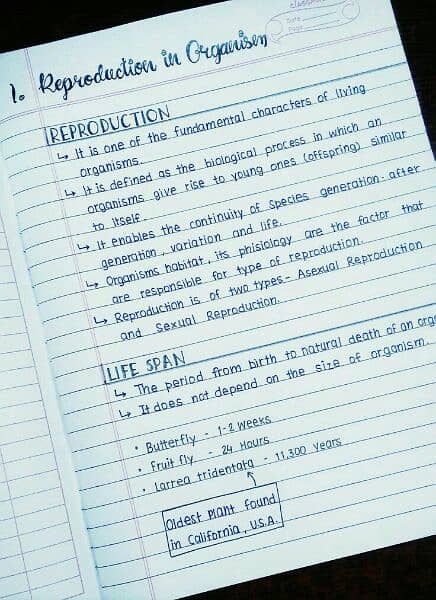 classmate
Date
Page
1. Reproduction in Organisem
REPRODUCTION
↳ It is one of the fundamental characters of living
organisms.
↳ It is defined as the biological process in which an
organisms give rise to young ones (offspring) similar
to itself.
↳ It enables the continuity of species generation. after
generation, variation and life.
↳ Organisms habitat, its phisiology are the factor that
are responsible for type of reproduction.
↳ Reproduction is of two types - Asexual Reproduction
and Sexual Reproduction.
LIFE SPAN
↳ The period from birth to natural death of an orga
↳ It does not depend on the size of organism.
• Butterfly - 1-2 Weeks
• Fruit fly - 24 Hours
• Larrea tridentata - 11,300 Years
Oldest Plant found
in California, U.S.A.